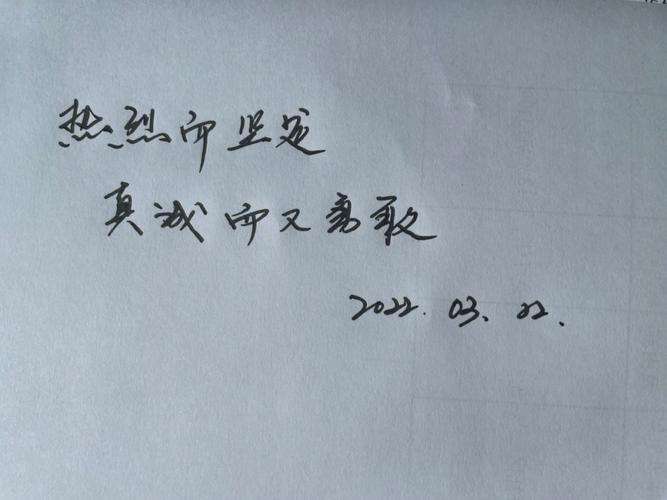 热烈而坚定
真诚而又勇敢
2022.03.22.